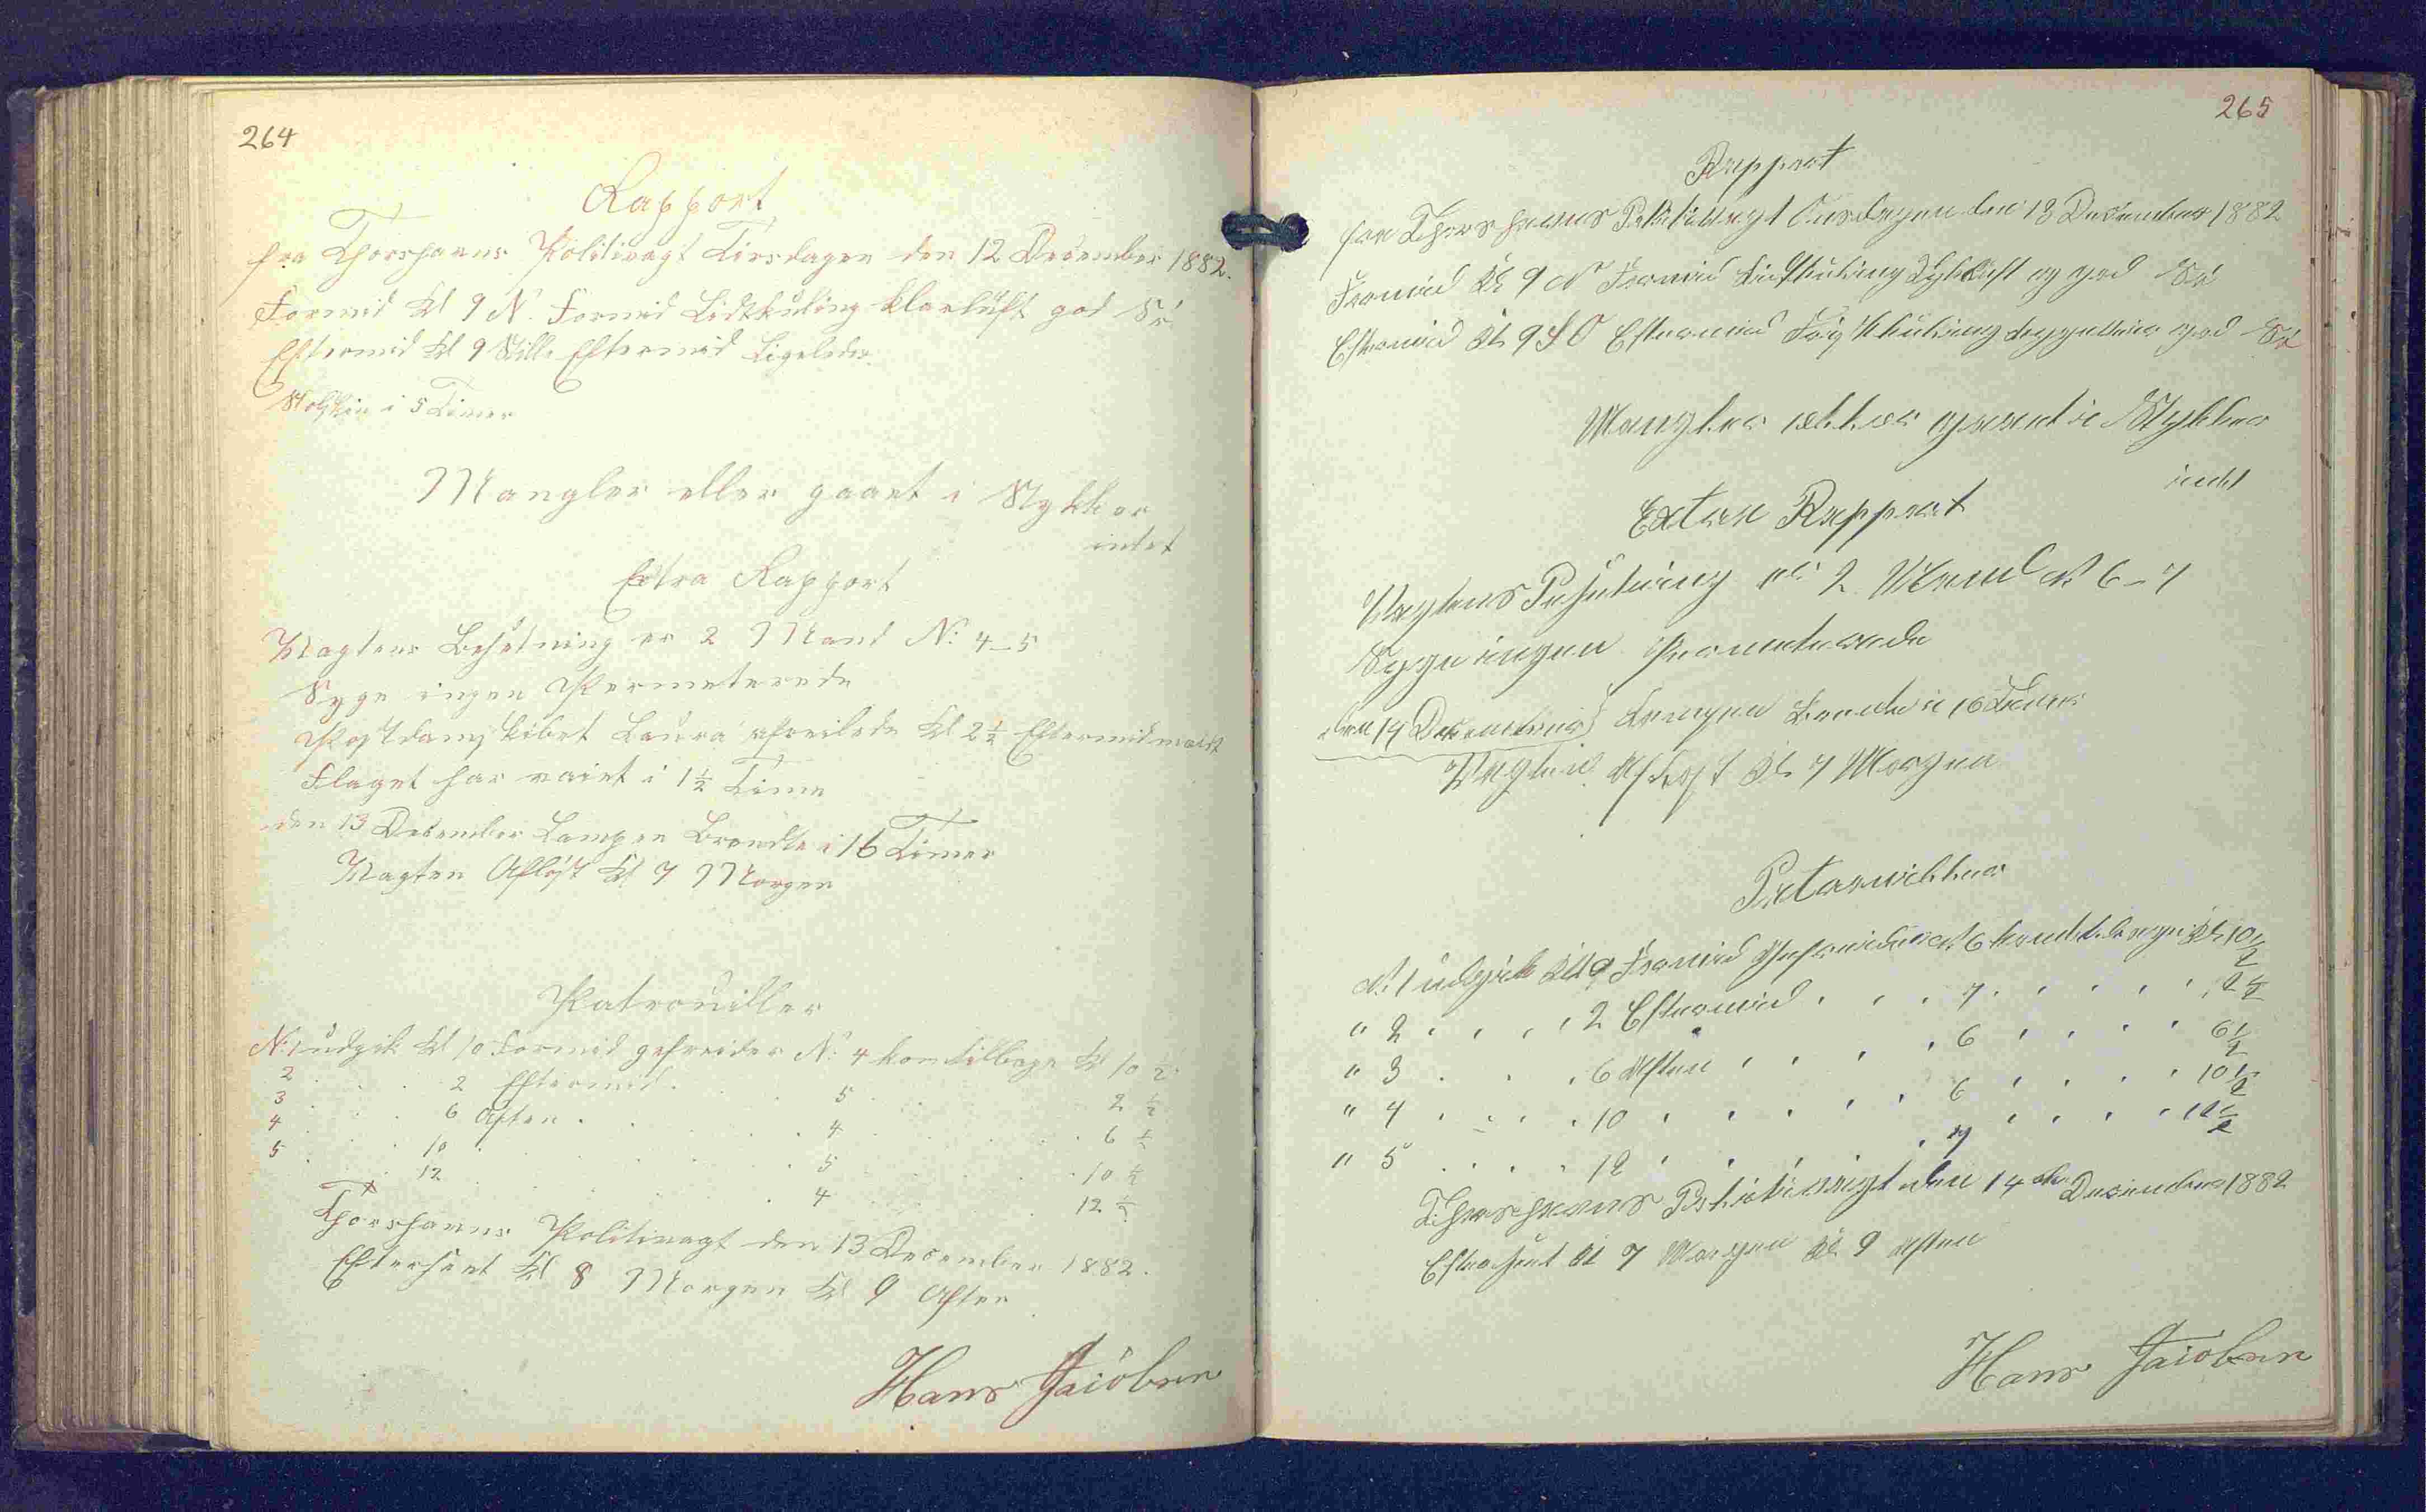 264
Rapport
fra Thorshavns Politivagt Tirsdagen den 12 December 1882.
Formid Kl 9 N. Formid Lidtkuling klarluft god Sê
Eftermid Kl 9 Stille Eftermid Ligeledes
Maaskin i 5 Timer
Mangler eller gaaet i Stykker
intet
Extra Rapport
Vagtens Besetning er 2 Mand No 4–5
Syge ingen Permeterede
Postdampskibet Laura afreiste Kl 2½ Eftermid
Flaget har vaiet i 1½ Time
den 13 December Lampen Brændte i 16 Timer
Vagten Afløst Kl 7 Morgen
Patrouiller
No 1 udgik Kl 10 Formid gefreider No 4 kom tilbage Kl 10 ½
2 . . . 2 Eftermid . . . 5 . . . 2 ½
3 . . . 6 Aften . . . 4 . . . 6 ½
4 . . . 10 . . . 5 . . . 10 ½
5 . . . 12 . . . 4 . . . 12 ½
Thorshavns Politivagt den 13 December 1882.
Efterseet Kl 8 Morgen Kl 9 Aften
Hans Jacobsen
265
Rapport
fra Thorshavns Politivagt Onsdagen den 13 December 1882
Formid Kl 9 N Formid Lidtkuling Tykluft og god Sê
Eftermid Kl 9 S O Eftermid Friskkuling god Sê
Mangler eller gaaet i Stykker
intet
Extra Rapport
Vagtens Besetning er 2 Mand No 6–7
Syge ingen Permeterede
den 14 December Lampen Brændte i 16 Timer
Vagten Afløst Kl 7 Morgen
Patarniller
No 1 udgik Kl 9 Formid Gefreider No 6 kom tilbage Kl 10 ½
" 2 . . . 2 Eftermid . . . 7 . . . 2 ½
" 3 . . . 6 Aften . . . 6 . . . 6 ½
" 4 . . . 10 . . . 6 . . . 10 ½
" 5 . . . 12 . . . 7 . . . 12 ½
Thorshavns Politivagt den 14de December 1882
Efterseet Kl 7 Morgen Kl 9 Aften
Hans Jacobsen